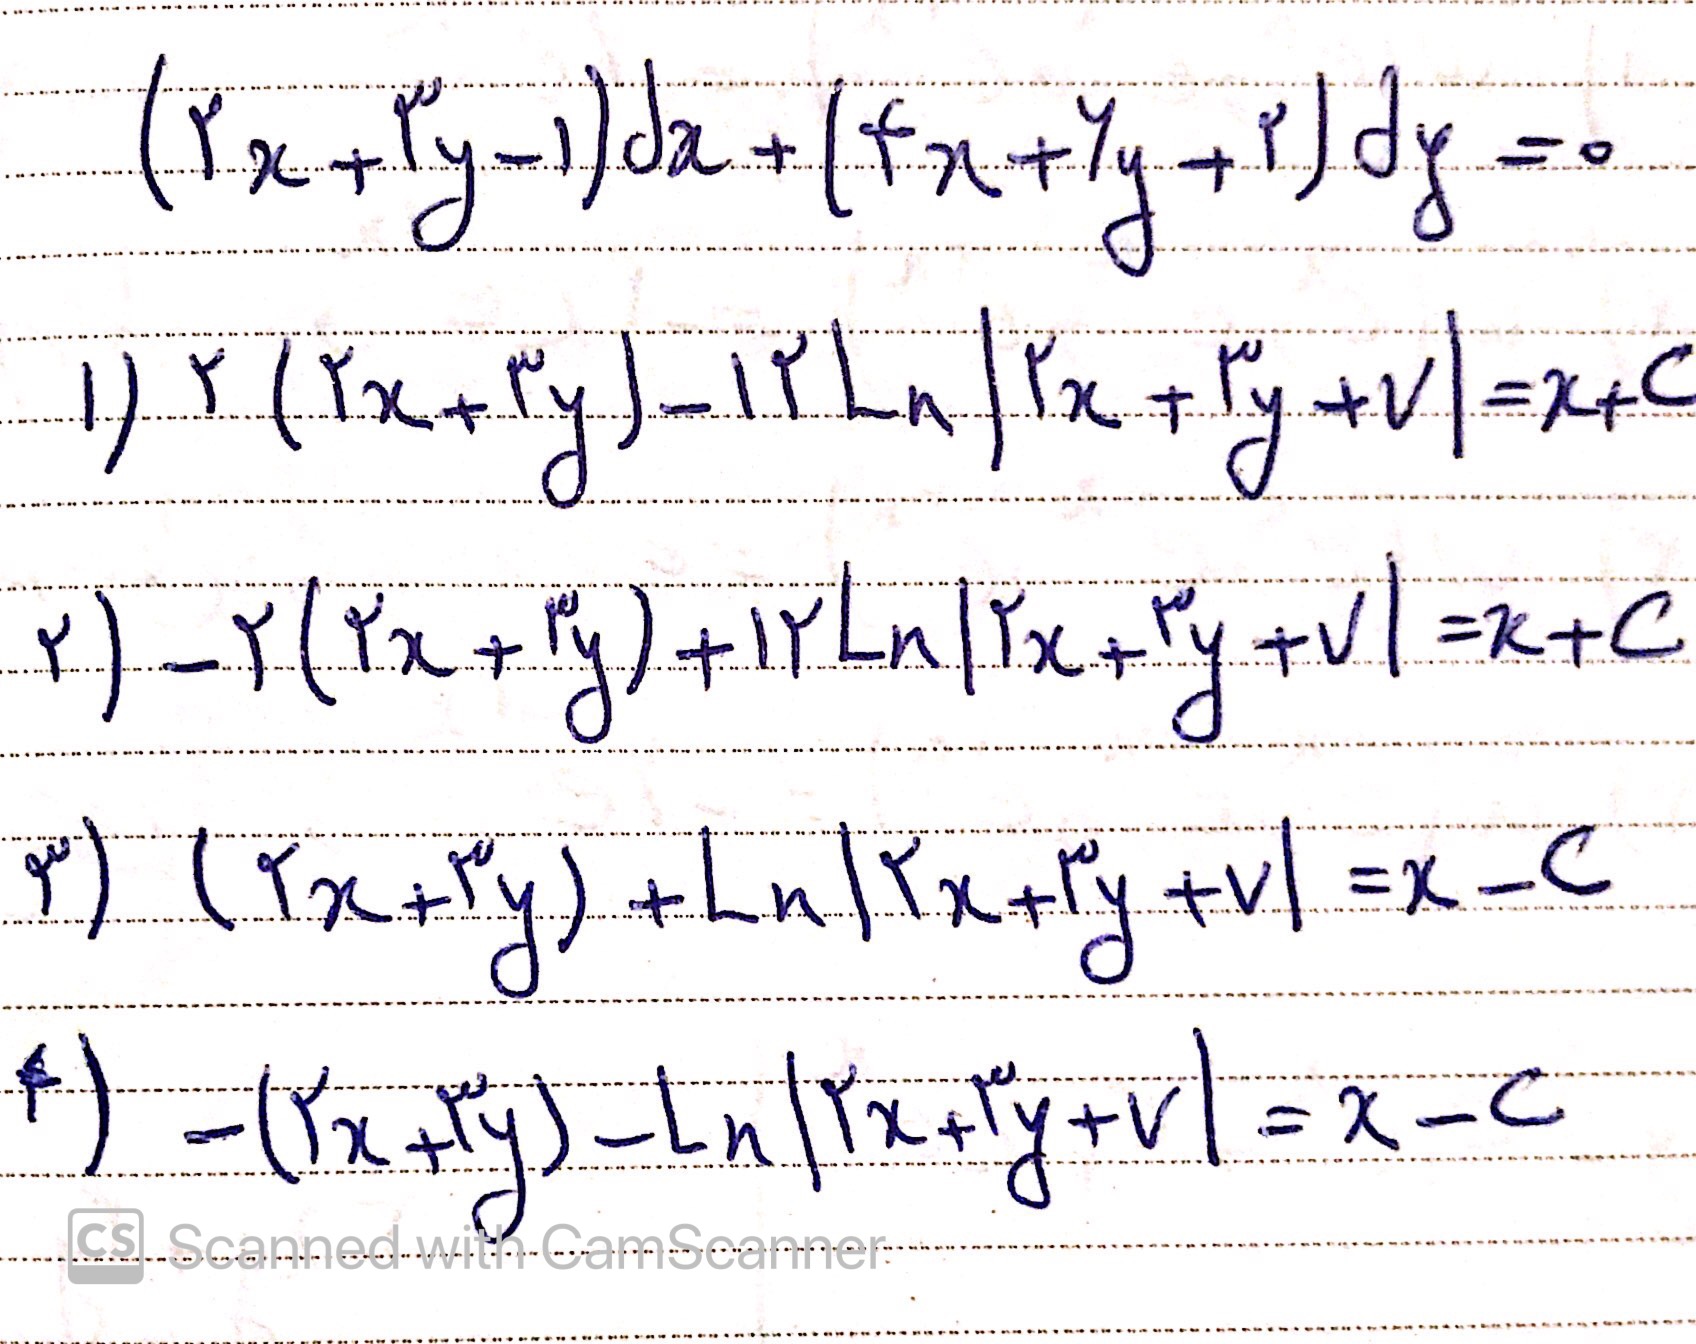 (۲x+۳y-۱)dx+(۴x+۶y+۲)dy=۰
۱) ۲(۲x+۳y)-۱۲Ln|۲x+۳y+۷|=x+C
۲) -۲(۲x+۳y)+۱۲Ln|۲x+۳y+۷|=x+C
۳) (۲x+۳y)+Ln|۲x+۳y+۷|=x-C
۴) -(۲x+۳y)-Ln|۲x+۳y+۷|=x-C
CS Scanned with CamScanner